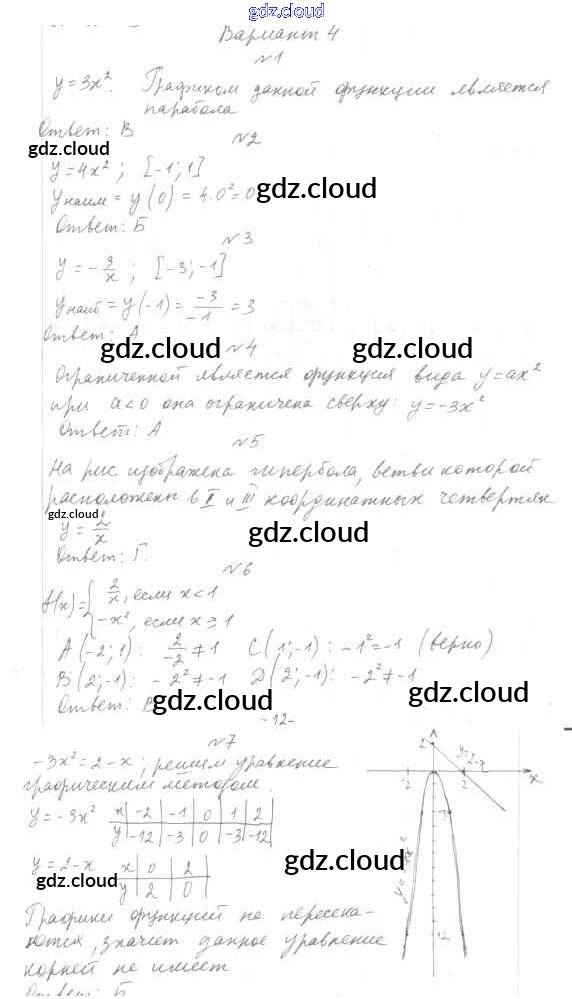 gdz.cloud
Вариант 4
№1
y = 3x². Графиком данной функции является
парабола
Ответ: В
gdz.cloud
№2
y = 4x² ; [-1; 1]
yнаим = y(0) = 4·0² = 0
gdz.cloud
Ответ: Б
№3
y = -3/x ; [-3; -1]
yнаиб = y(-1) = -3/-1 = 3
Ответ: А
gdz.cloud gdz.cloud
№4
Ограниченной является функция вида y = ax²
при a < 0 она ограничена сверху: y = -3x²
Ответ: А
№5
На рис изображена гипербола, ветви которой
расположены в I и III координатных четвертях
gdz.cloud gdz.cloud
y = 2/x
Ответ: Г.
№6
f(x) = { 2/x, если x < 1
-x², если x ≥ 1
A(-2; 1): 2/-2 ≠ 1 C(1; -1): -1² = -1 (верно)
B(2; -1): -2² ≠ -1 D(2; -1): -2² ≠ -1
Ответ:
gdz.cloud gdz.cloud gdz.cloud
-12-
№7
-3x² = 2 - x ; решим уравнение
графическим методом.
y = -3x² x | -2 | -1 | 0 | 1 | 2
y | -12 | -3 | 0 | -3 | -12
y = 2 - x x | 0 | 2
y | 2 | 0
gdz.cloud gdz.cloud
Графики функций не пересека-
ются, значит данное уравнение
корней не имеет
Ответ: Б
2
y = 2 - x
-2 2 x
-3
-12